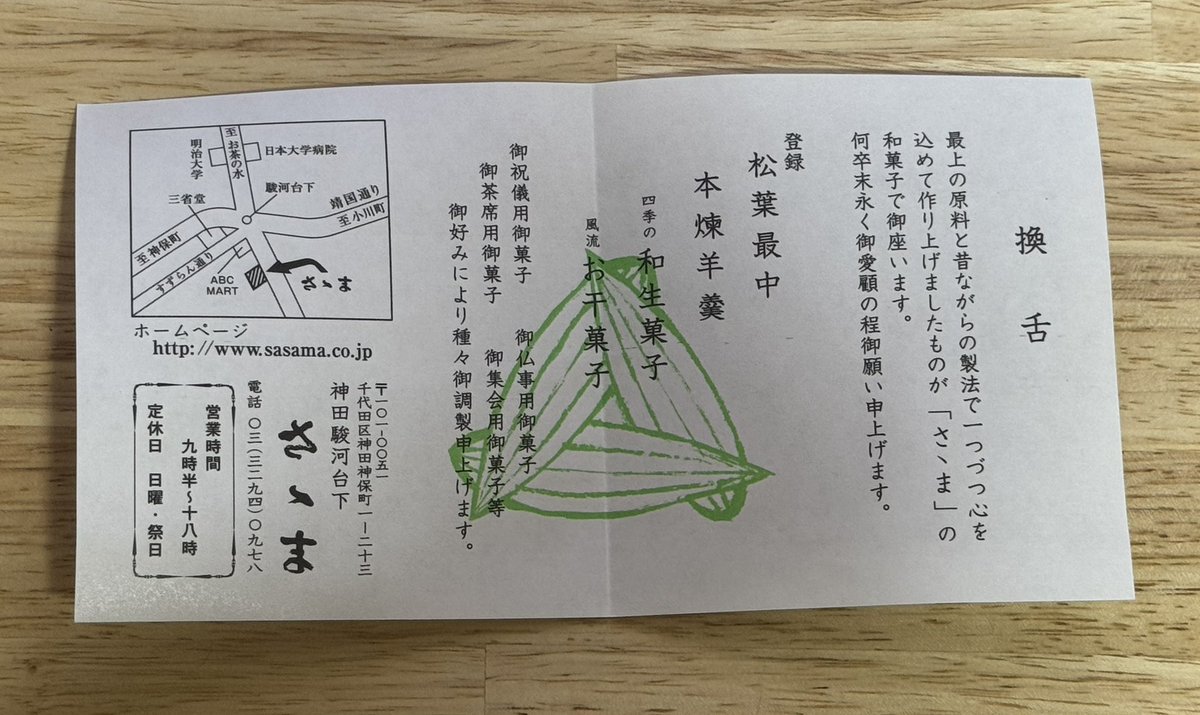 換舌
最上の原料と昔ながらの製法で一つづつ心を
込めて作り上げましたものが「さゝま」の
和菓子で御座います。
何卒末永く御愛顧の程御願い申上げます。
登録
松葉最中
本煉羊羹
四季の和生菓子
風流お干菓子
御祝儀用御菓子 御仏事用御菓子
御茶席用御菓子 御集会用御菓子等
御好みにより種々御調製申上げます。
至お茶の水
明治大学
日本大学病院
駿河台下
三省堂
靖国通り
至小川町
至神保町
すずらん通り
ABC
MART
さゝま
ホームページ
http://www.sasama.co.jp
〒一〇一-〇〇五一
千代田区神田神保町一ー二十三
神田駿河台下
さゝま
電話 〇三(三二九四)〇九七八
営業時間
九時半〜十八時
定休日 日曜・祭日